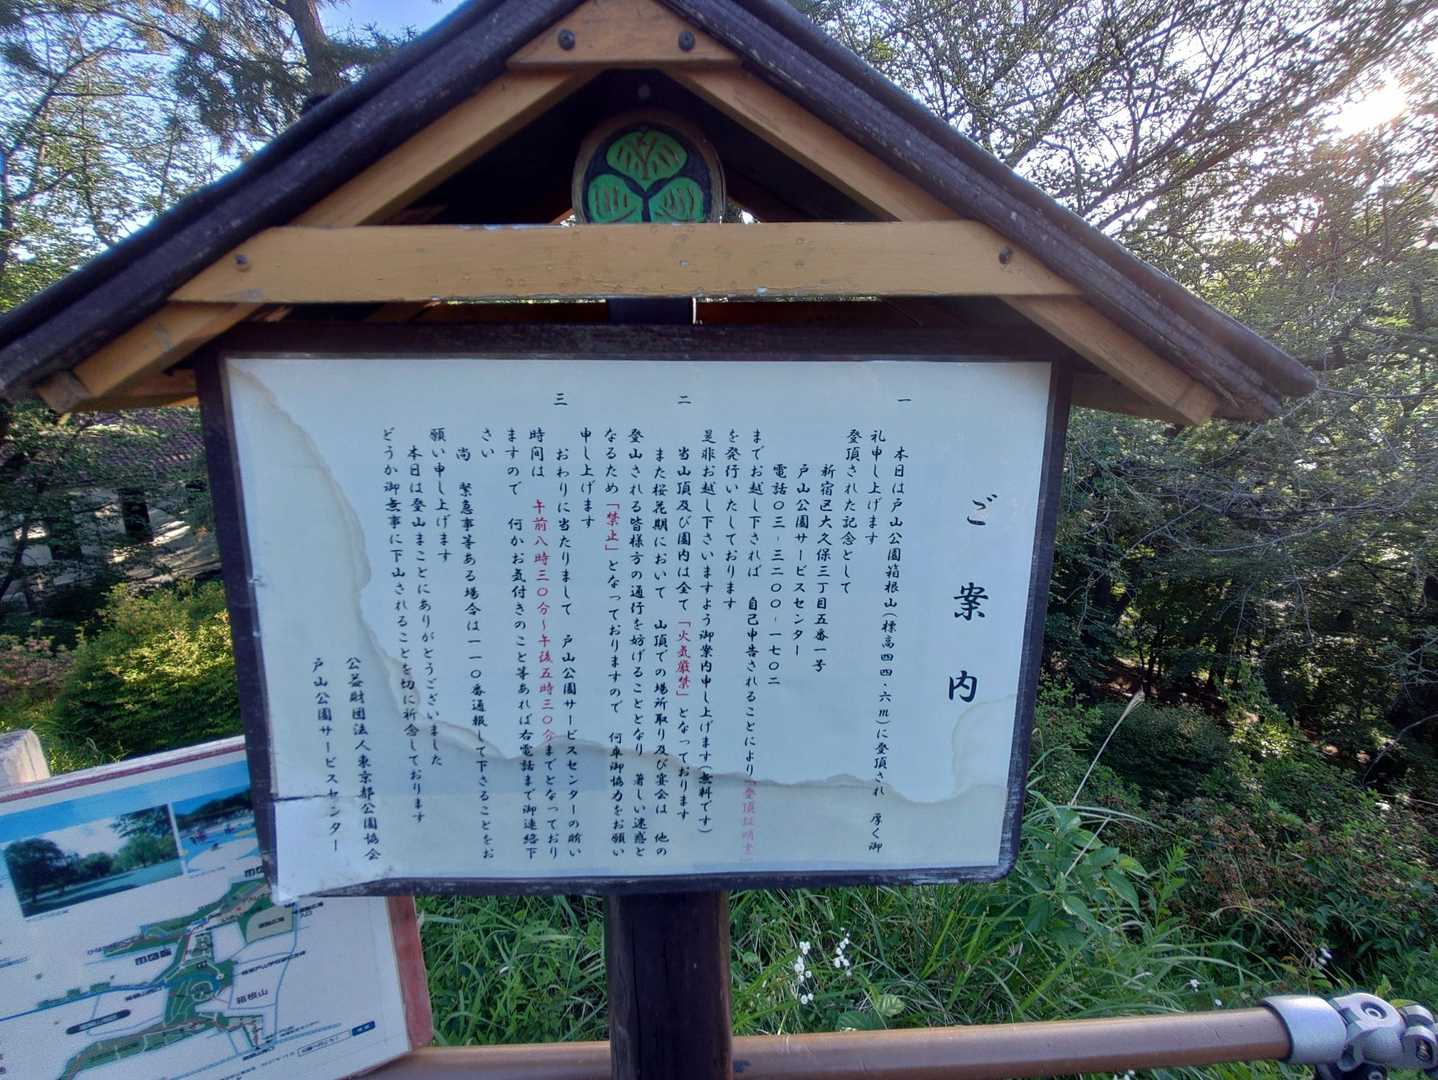 ご案内
一
本日は戸山公園箱根山(標高四四.六m)に登頂され 厚く御
礼申し上げます
登頂された記念として
新宿区大久保三丁目五番一号
戸山公園サービスセンター
電話〇三-三二〇〇-一七〇二
までお越し下されば 自己申告されることにより「登頂証明書」
を発行いたしております
是非お越し下さいますよう御案内申し上げます(無料です)
二
当山頂及び園内は全て「火気厳禁」となっております
また桜花期において 山頂での場所取り及び宴会は 他の
登山される皆様方の通行を妨げることとなり 著しい迷惑と
なるため「禁止」となっておりますので 何卒御協力をお願い
申し上げます
三
おわりに当たりまして 戸山公園サービスセンターの賄い
時間は 午前八時三〇分~午後五時三〇分までとなっており
ますので 何かお気付きのこと等あれば右電話まで御連絡下
さい
尚 緊急事等ある場合は一一〇番通報して下さることをお
願い申し上げます
本日は登山まことにありがとうございました
どうか御無事に下山されることを切に祈念しております
公益財団法人東京都公園協会
戸山公園サービスセンター
箱根山